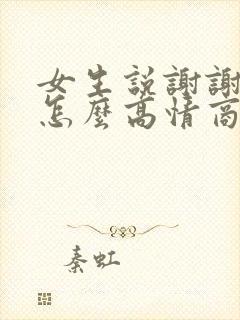 女生説謝謝
怎麽高情商
秦虹